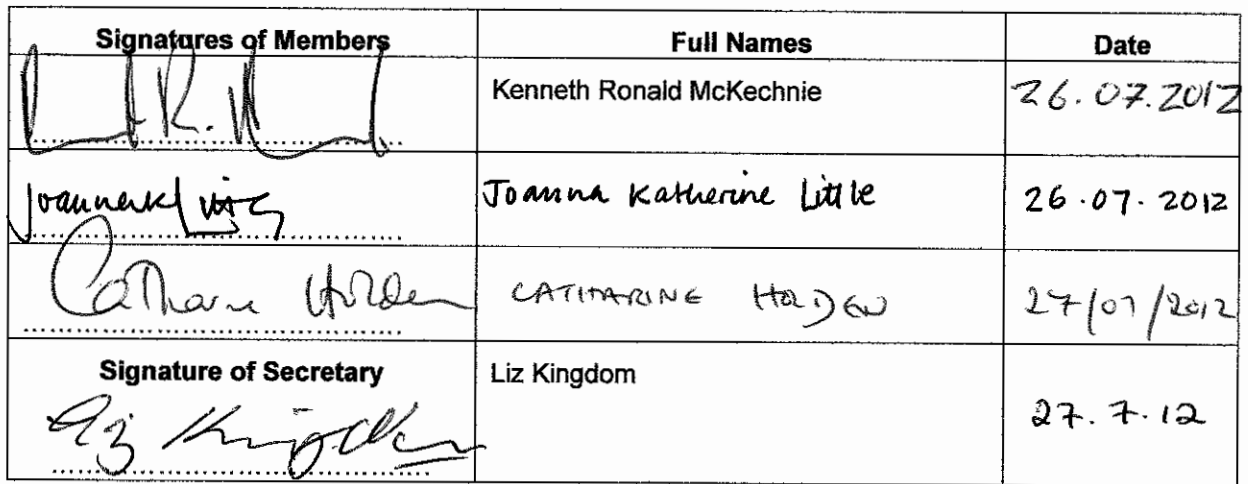 Signatures of Members Full Names Date
Kenneth Ronald McKechnie 26.07.2012
Joanna Katherine Little 26.07.2012
Catharine Holden CATHARINE HOLDEN 27/07/2012
Signature of Secretary Liz Kingdom
Liz Kingdom 27.7.12